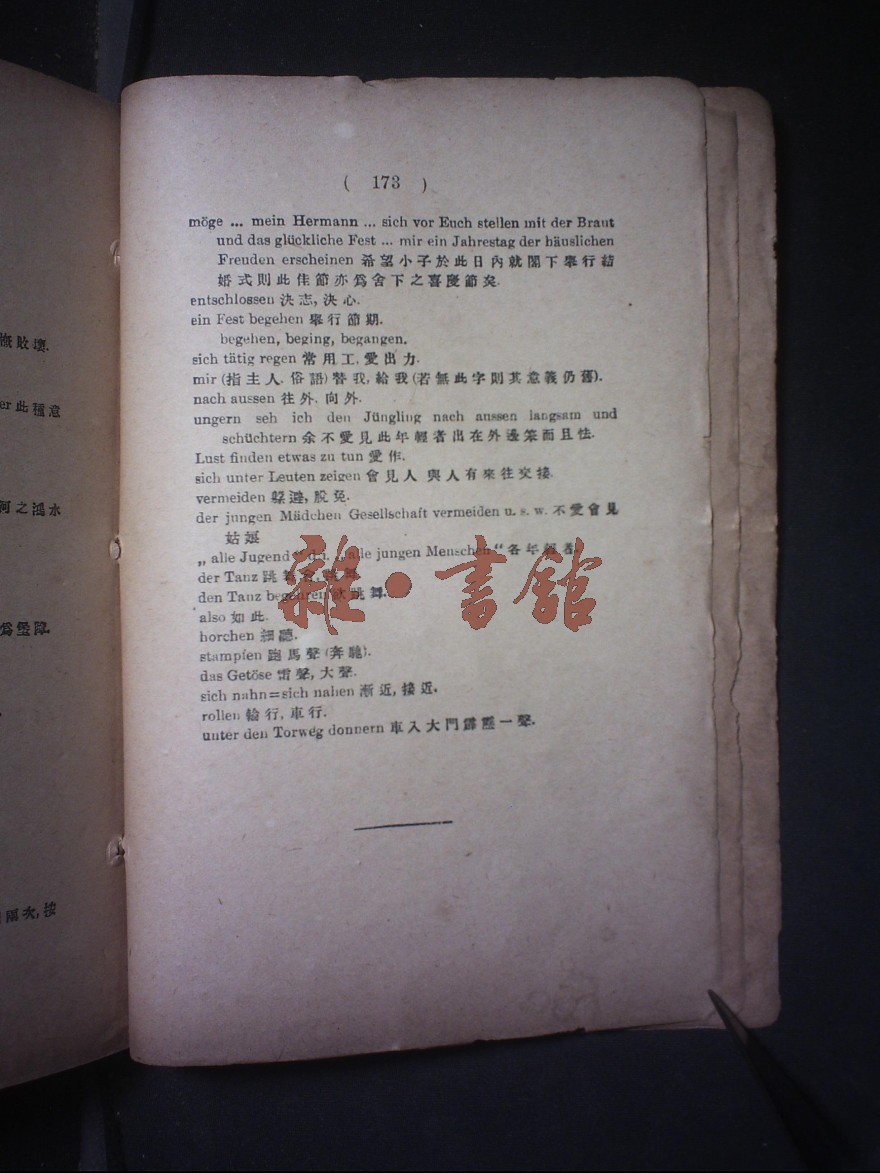 無敗壞.
er 此種意
河之鴻水
爲璧障.
兩次, 按
( 173 )
möge ... mein Hermann ... sich vor Euch stellen mit der Braut
und das glückliche Fest ... mir ein Jahrestag der häuslichen
Freuden erscheinen 希望小子於此日內就閣下舉行結
婚式則此佳節亦爲舍下之喜慶節矣.
entschlossen 決志, 決心.
ein Fest begehen 舉行節期.
begehen, beging, begangen.
sich tätig regen 常用工, 愛出力.
mir (指主人, 俗語) 替我, 給我 (若無此字則其意義仍舊).
nach aussen 往外, 向外.
ungern seh ich den Jüngling nach aussen langsam und
schüchtern 余不愛見此年輕者出在外邊笨而且怯.
Lust finden etwas zu tun 愛作.
sich unter Leuten zeigen 會見人 與人有來往交接.
vermeiden 躱避, 脫免.
der jungen Mädchen Gesellschaft vermeiden u. s. w. 不愛會見
姑娘
„ alle Jugend“ d. i. „alle jungen Menschen“ 各年輕者
der Tanz 跳舞會, 跳舞
den Tanz begehren 欲跳舞.
also 如此.
horchen 細聽.
stampfen 跑馬聲 (奔馳).
das Getöse 雷聲, 大聲.
sich nahn=sich nahen 漸近, 接近.
rollen 輪行, 車行.
unter den Torweg donnern 車入大門霹靂一聲.
雜·書館